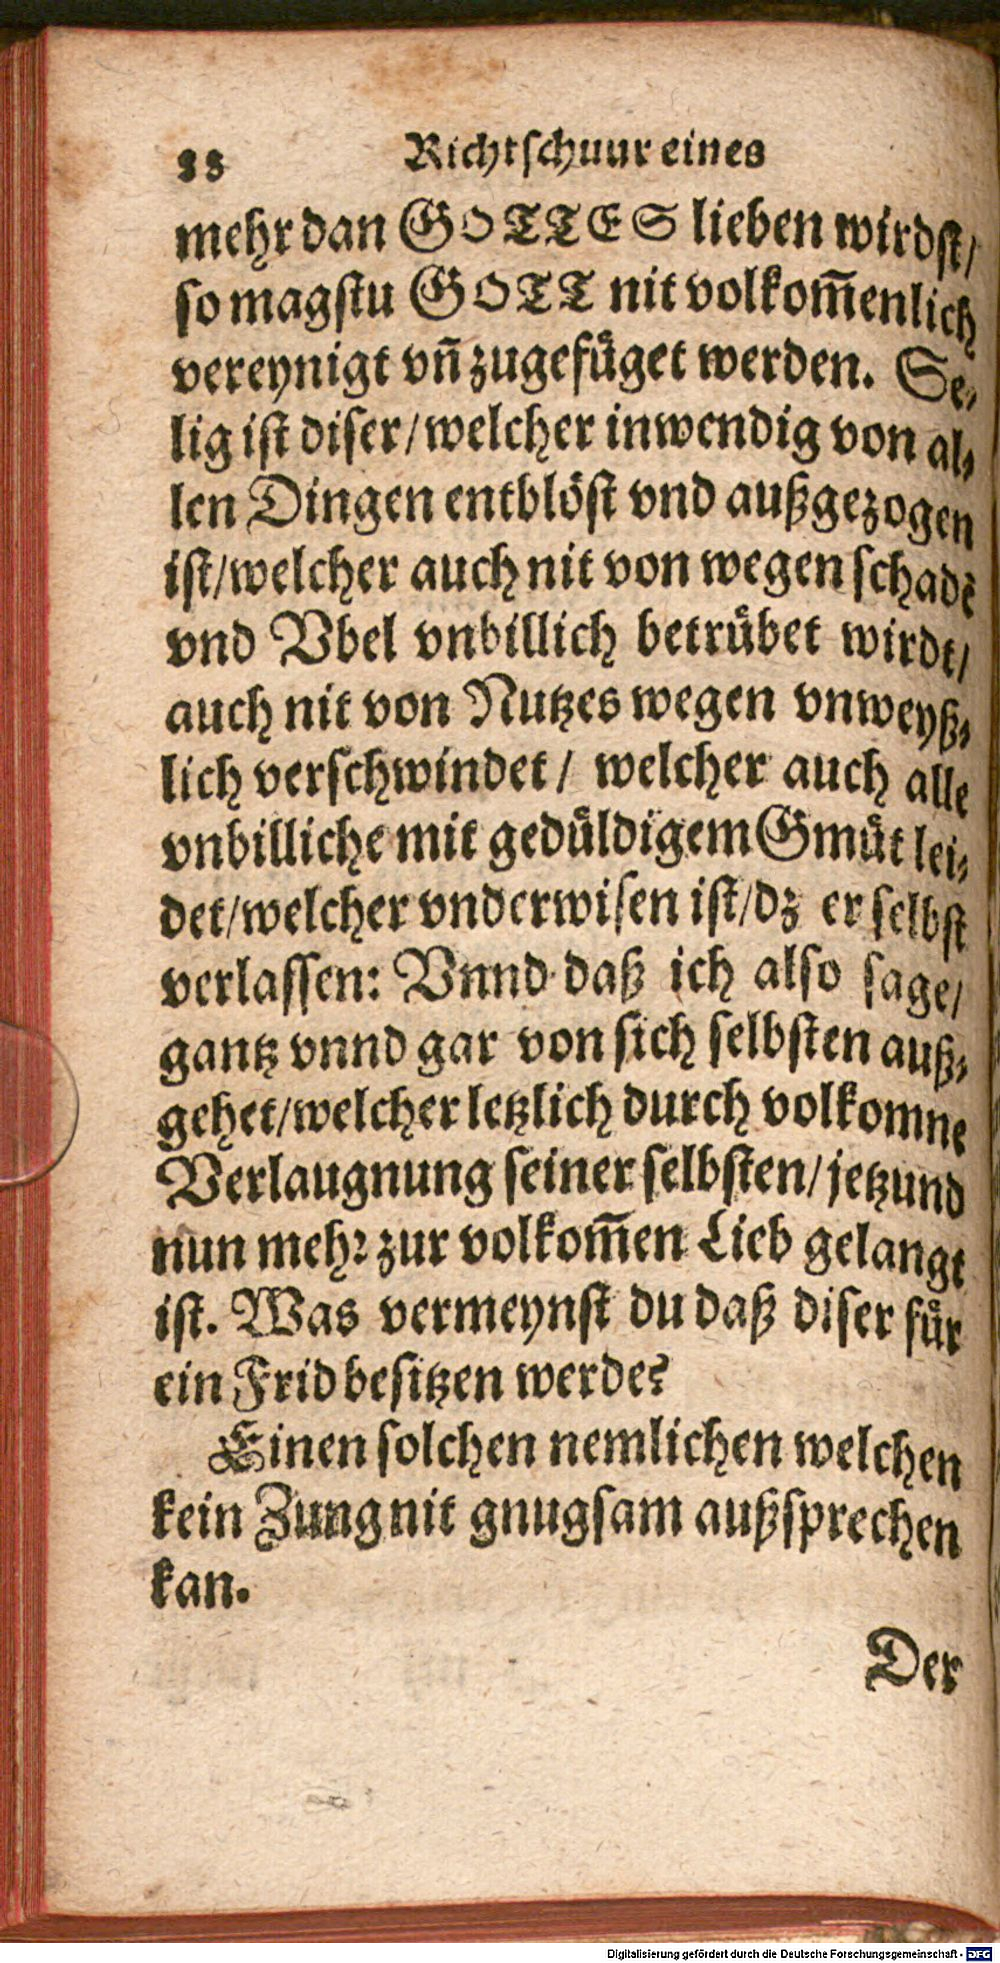 88 Richtschnur eines
mehr dan GOTTES lieben wirdst/
so magstu GOTT nit volkom̃enlich
vereynigt vñ zugefüget werden. Se-
lig ist diser/welcher inwendig von al-
len Dingen entblöst vnd außgezogen
ist/welcher auch nit von wegen schadẽ
vnd Vbel vnbillich betrübet wirdt/
auch nit von Nutzes wegen vnweyß-
lich verschwindet/ welcher auch alle
vnbilliche mit gedüldigem Gmüt lei-
det/welcher vnderwisen ist/dz er selbst
verlassen: Vnnd daß ich also sage/
gantz vnnd gar von sich selbsten auß-
gehet/welcher letzlich durch volkomne
Verlaugnung seiner selbsten/jetzund
nun mehr zur volkom̃en Lieb gelangt
ist. Was vermeynst du daß diser für
ein Frid besitzen werde?
Einen solchen nemlichen welchen
kein Zung nit gnugsam außsprechen
kan.
Der
Digitalisierung gefördert durch die Deutsche Forschungsgemeinschaft - DFG